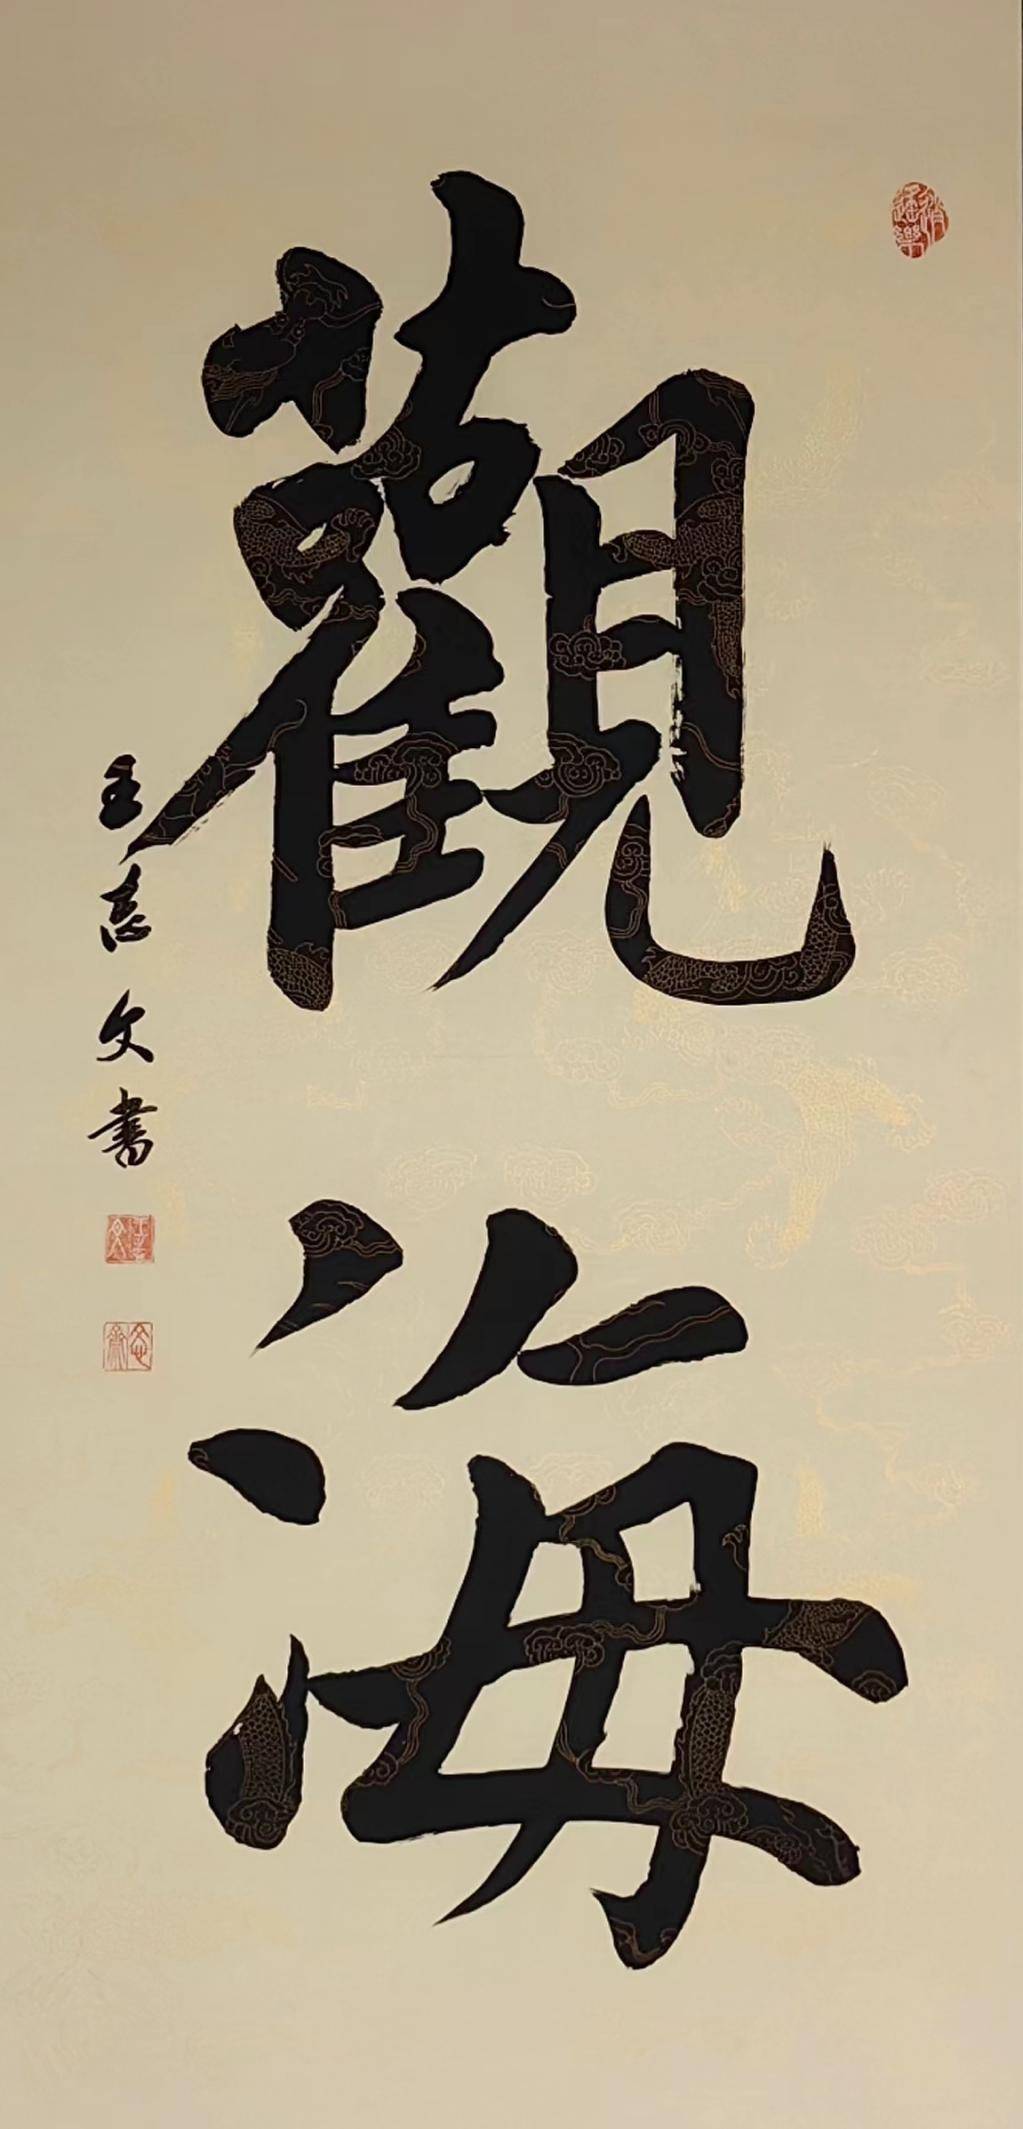 觀海
王志文書